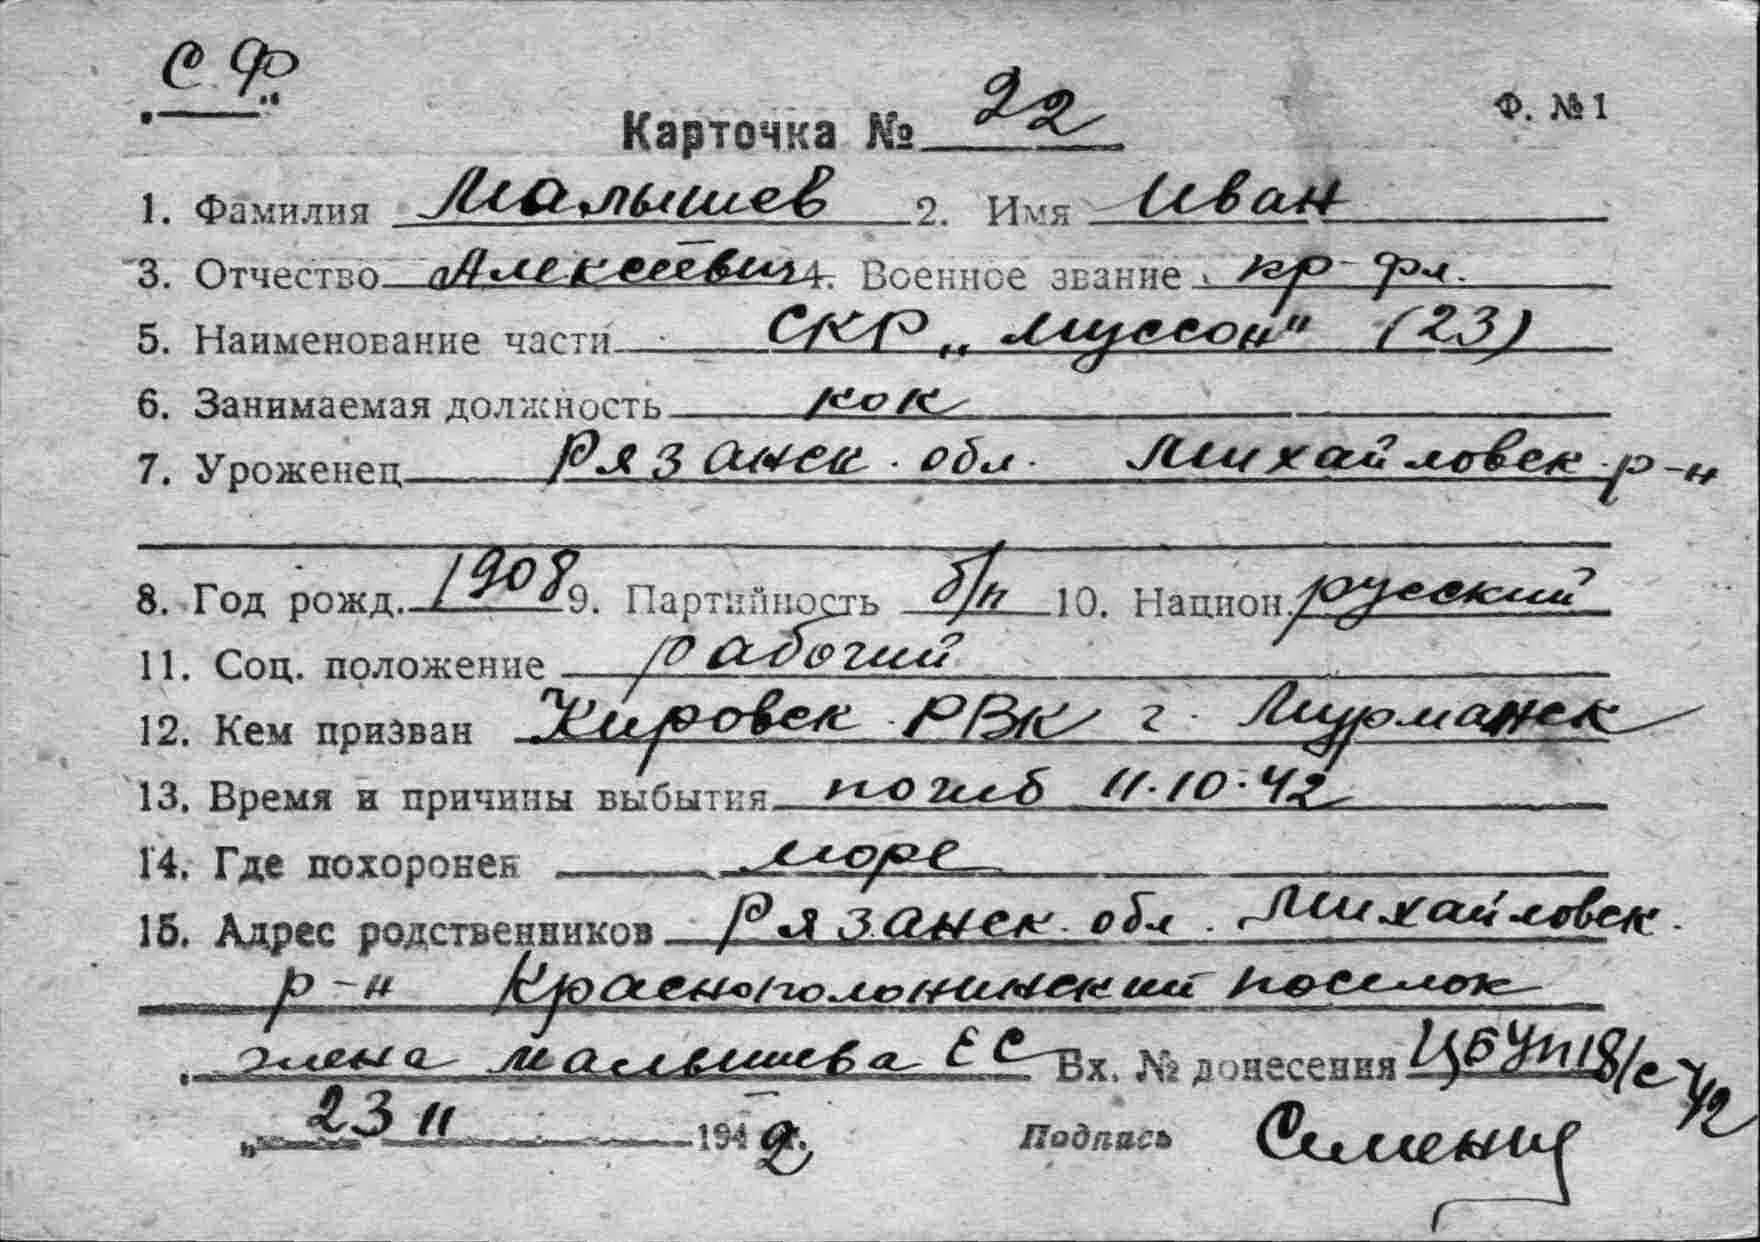 С.Ф
Ф. №1
Карточка № 22
1. Фамилия Малышев 2. Имя Иван
3. Отчество Алексеевич 4. Военное звание кр-фл.
5. Наименование части СКР „Муссон" (23)
6. Занимаемая должность кок
7. Уроженец Рязанск. обл. Михайловск. р-н
8. Год рожд. 1908 9. Партийность б/п 10. Национ. русский
11. Соц. положение рабочий
12. Кем призван Кировск. РВК г. Мурманск
13. Время и причины выбытия погиб 11.10.42
14. Где похоронен море
15. Адрес родственников Рязанск. обл. Михайловск.
р-н Краснополонинский поселок
жена Малышева Е С Вх. № донесения 18/с-42
„ 23 11 1942 г. Подпись